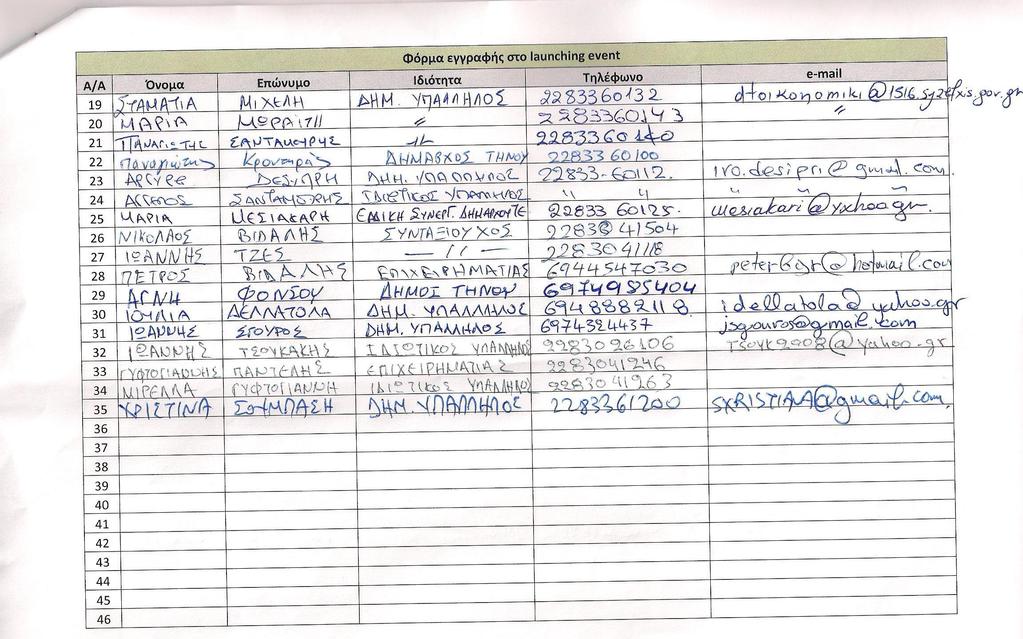 Φόρμα εγγραφής στο launching event
Α/Α Όνομα Επώνυμο Ιδιότητα Τηλέφωνο e-mail
19 ΣΤΑΜΑΤΙΑ ΜΙΧΕΛΗ ΔΗΜ. ΥΠΑΛΛΗΛΟΣ 2283360132 dtoikonomiki@1516.syzefxis.gov.gr
20 ΜΑΡΙΑ ΜΩΡΑΙΤΗ〃 2283360143 〃
21 ΠΑΝΑΓΙΩΤΗΣ ΣΑΝΤΑΜΟΥΡΗΣ 〃 2283360140
22 Παναγιώτης Κροντηράς ΔΗΜΑΡΧΟΣ ΤΗΝΟΥ 22833 60100
23 ΑΡΓΥΡΩ ΔΕΣΥΠΡΗ ΔΗΜ. ΥΠΑΛΛΗΛΟΣ 22833-60112. iro.desipri@gmail.com.
24 ΙΔΙΩΤΙΚΟΣ ΥΠΑΛΛΗΛΟΣ 〃 〃 〃 〃
25 ΜΑΡΙΑ ΜΕΣΙΑΚΑΡΗ ΕΙΔΙΚΗ ΣΥΝΕΡΓ. ΔΗΜΑΡΧΟΥ 22833 60125. mesiakari@yahoo.gr.
26 ΝΙΚΟΛΑΟΣ ΒΙΔΑΛΗΣ ΣΥΝΤΑΞΙΟΥΧΟΣ 22830 41504
27 ΙΩΑΝΝΗΣ ΤΖΕΣ — // — 2283041118
28 ΠΕΤΡΟΣ ΒΙΔΑΛΗΣ ΕΠΙΧΕΙΡΗΜΑΤΙΑΣ 6944547030
29 ΑΓΝΗ ΦΟΝΣΟΥ ΔΗΜΟΣ ΤΗΝΟΥ 6974985404
30 ΙΟΥΛΙΑ ΔΕΛΛΑΤΟΛΑ ΔΗΜ. ΥΠΑΛΛΗΛΟΣ 6948882118 idellatola@yahoo.gr
31 ΙΩΑΝΝΗΣ ΣΓΟΥΡΟΣ ΔΗΜ. ΥΠΑΛΛΗΛΟΣ 6974324437 jsgouros@gmail.com
32 ΙΩΑΝΝΗΣ ΤΣΟΥΚΑΚΗΣ ΙΔΙΩΤΙΚΟΣ ΥΠΑΛΛΗΛΟΣ 2283026106 τσουκ2008@yahoo.gr
33 ΓΥΦΤΟΓΙΑΝΝΗΣ ΠΑΝΤΕΛΗΣ ΕΠΙΧΕΙΡΗΜΑΤΙΑΣ 2283041246
34 ΜΙΡΕΛΛΑ ΓΥΦΤΟΓΙΑΝΝΗ ΙΔΙΩΤΙΚΟΣ ΥΠΑΛΛΗΛΟΣ 2283041263
35 ΧΡΙΣΤΙΝΑ ΣΟΥΜΠΑΣΗ ΔΗΜ. ΥΠΑΛΛΗΛΟΣ 2283361200
36
37
38
39
40
41
42
43
44
45
46